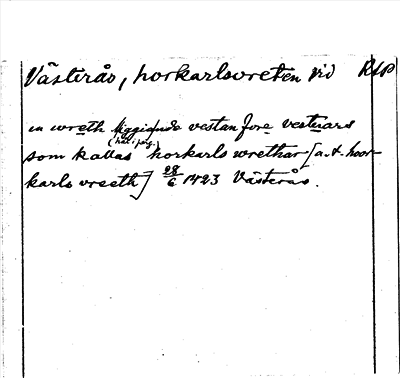 Västerås, horkarlsvreten vid RAP
en wreth liggiande vestan fore vesterars
(hål i perg.)
som kallas horkarls wrethar [a. t. hoor-
karls vreeth] 28/6 1423 Västerås.